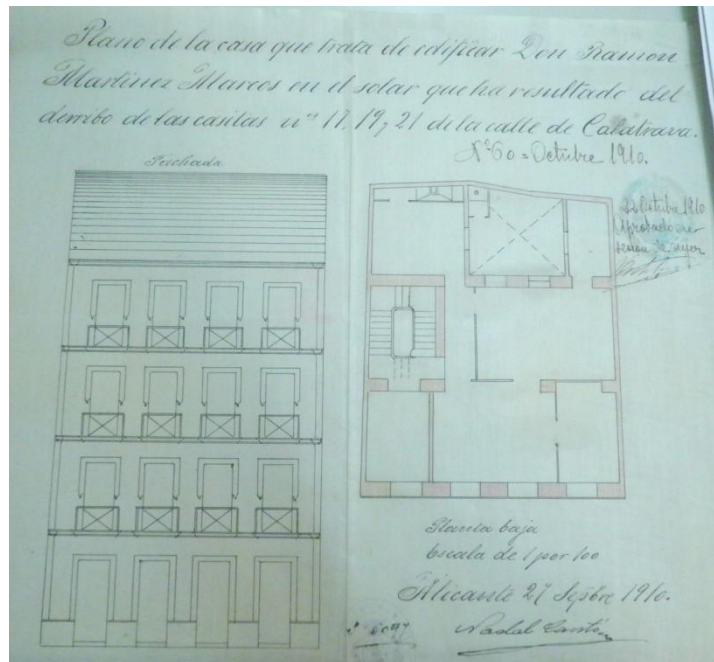 Plano de la casa que trata de edificar Don Ramon
Martinez Marcos en el solar que ha resultado del
derribo de las casitas nos 17, 19, 21 de la calle de Calatrava.
Nº 60 = Octubre 1910.
Fachada
22 Octubre 1910
Aprobado en
sesion de ayer
Planta baja
Escala de 1 por 100
Alicante 27 Sepbre 1910.